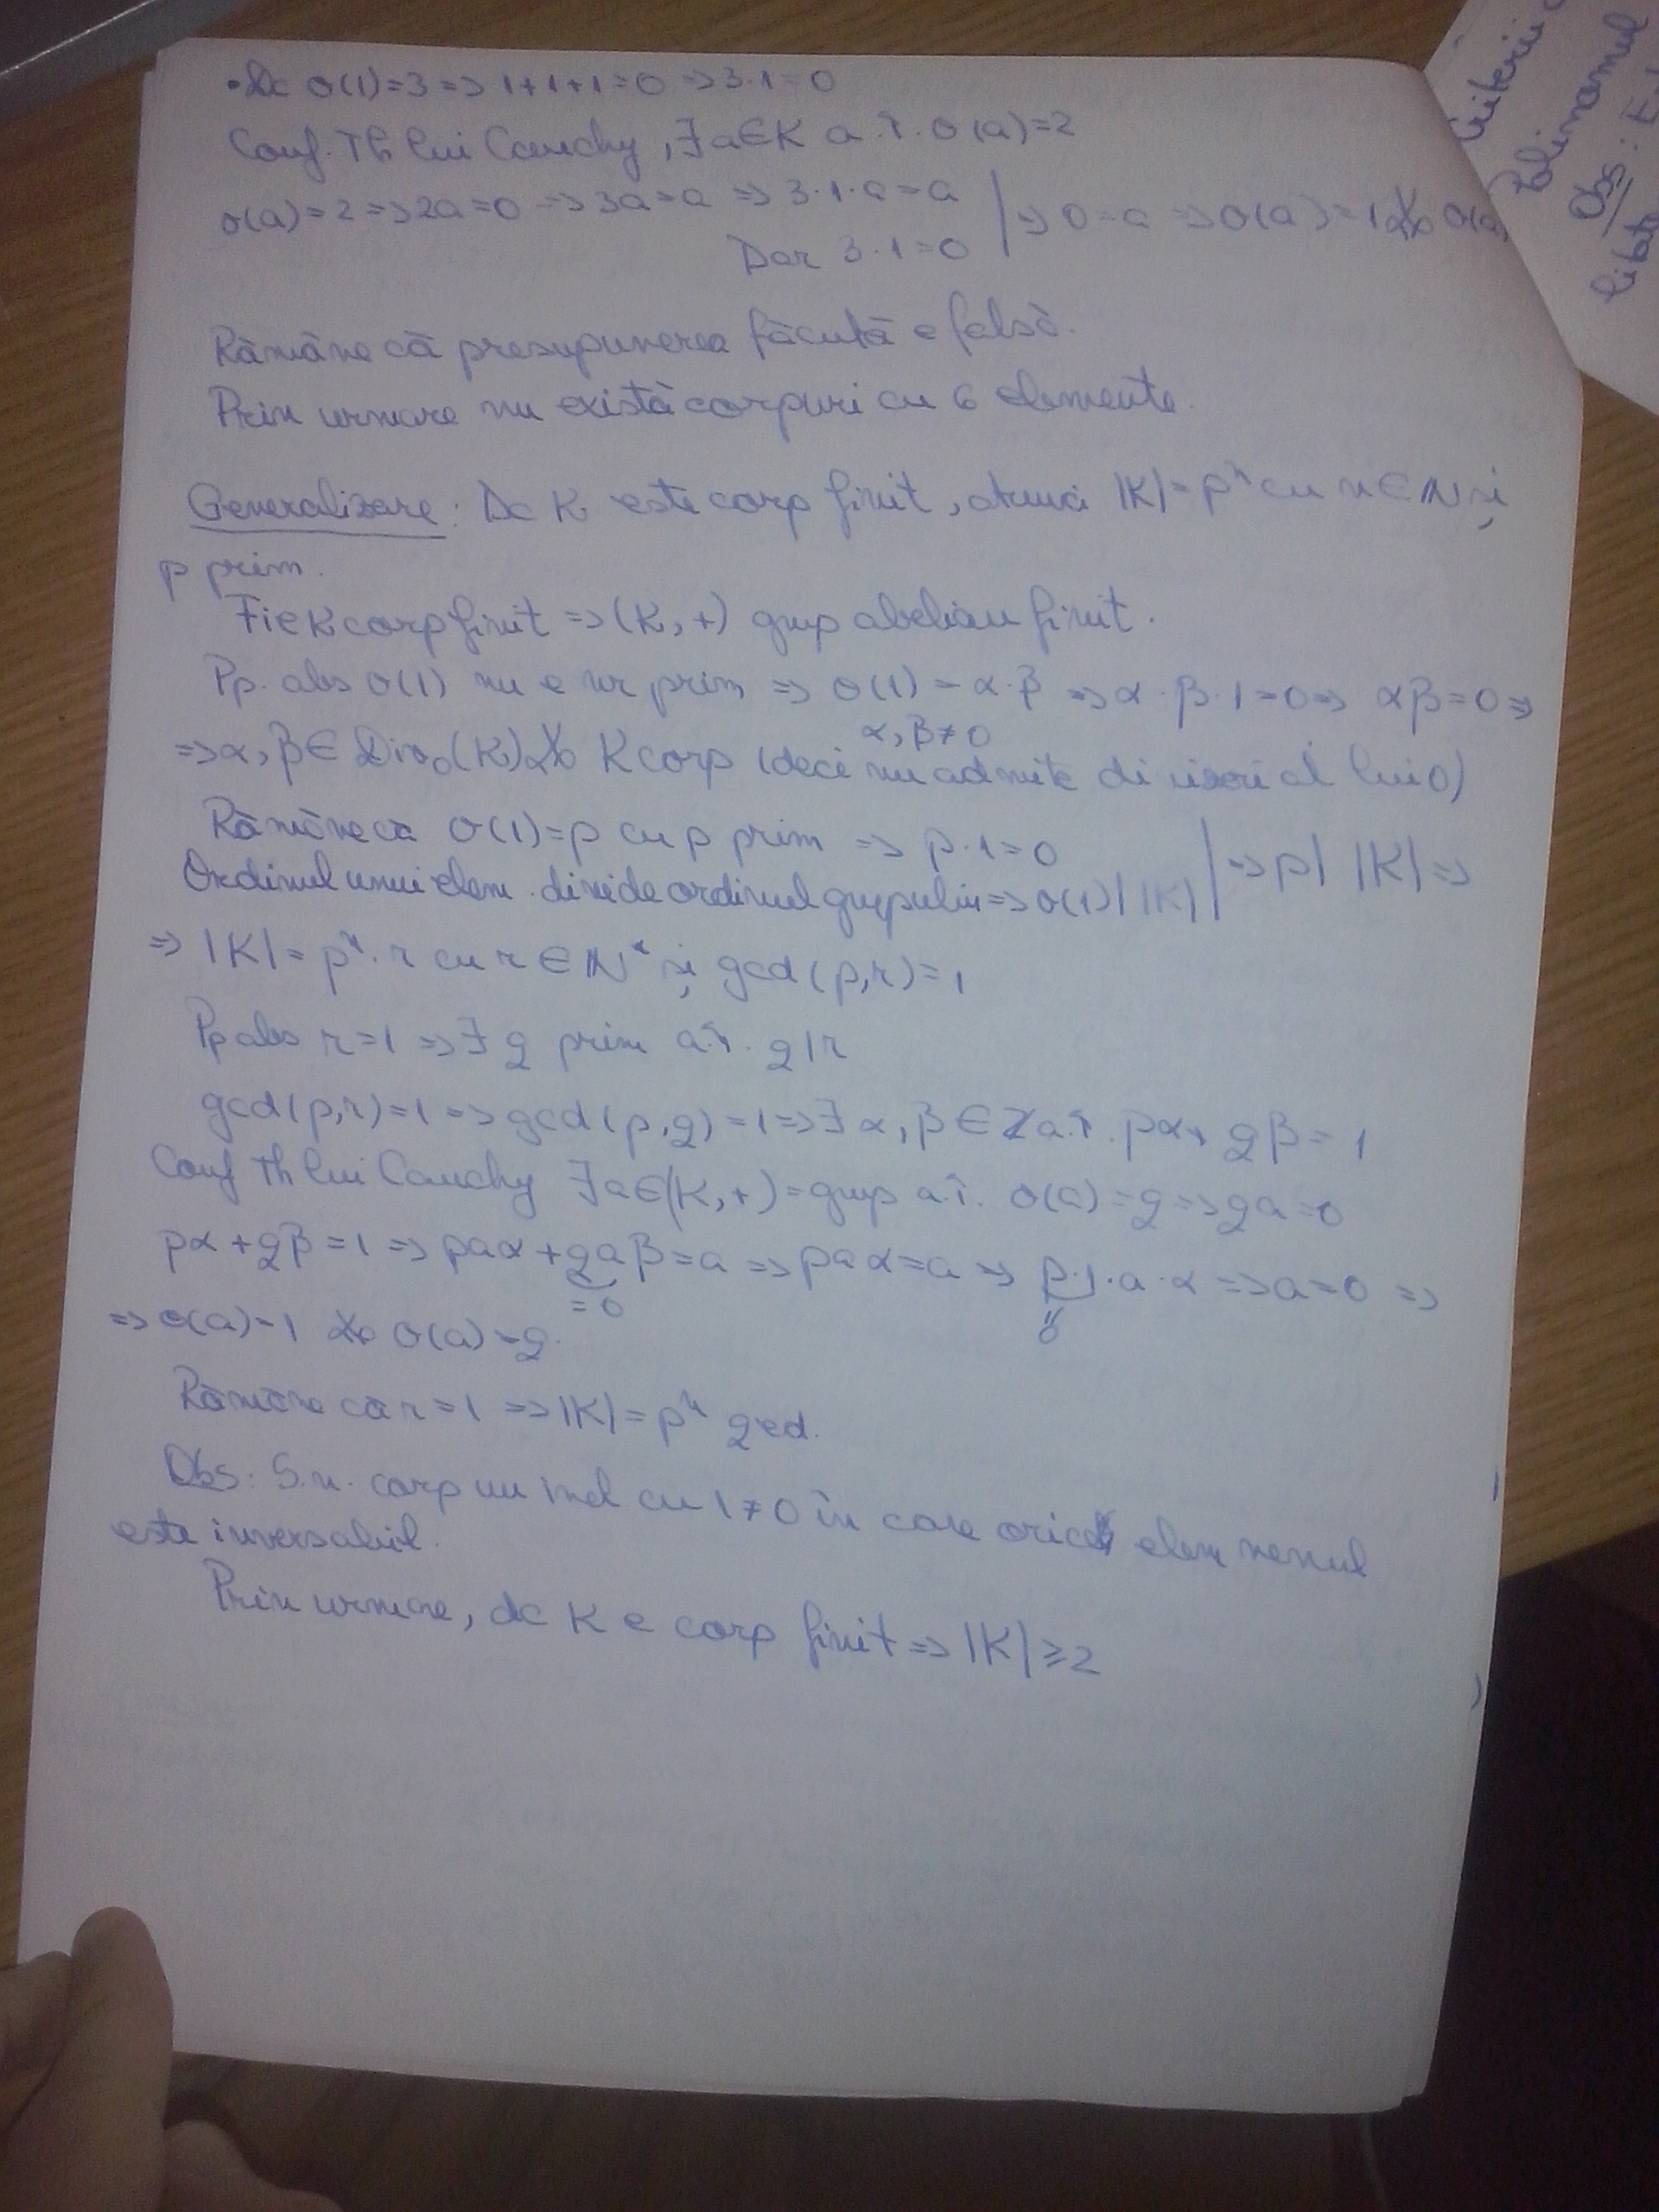 • Dc o(1)=3 => 1+1+1=0 => 3·1=0
Conf. Th lui Cauchy, ∃a∈K a.î. o(a)=2
o(a)=2 => 2a=0 => 3a=a => 3·1·a=a | => 0=a => o(a)=1 o(a)
Dar 3·1=0
Rămâne că presupunerea făcută e falsă.
Prin urmare nu există corpuri cu 6 elemente.
Generalizare: Dc K este corp finit, atunci |K|=pⁿ cu n∈ℕ și
p prim.
Fie K corp finit => (K,+) grup abelian finit.
Pp. abs o(1) nu e nr prim => o(1)=α·β => α·β·1=0 => αβ=0 =>
α,β≠0
=> α,β∈Div₀(K) K corp (deci nu admite divizori ai lui 0)
Rămâne ca o(1)=p cu p prim => p·1=0
Ordinul unui elem. divide ordinul grupului => o(1)| |K| | => p| |K| =>
=> |K|=pⁿ·r cu r∈ℕ* și gcd(p,r)=1
Pp abs r=1 => ∃ q prim a.î. q|r
gcd(p,r)=1 => gcd(p,q)=1 => ∃α,β∈ℤ a.î. pα+qβ=1
Conf Th lui Cauchy ∃a∈(K,+)=grup a.î. o(a)=q => qa=0
pα+qβ=1 => paα+qaβ=a => paα=a => p·1·a·α => a=0 =>
=0
0
=> o(a)=1 o(a)=q.
Rămâne că r=1 => |K|=pⁿ qed.
Obs: S.n. corp un inel cu 1≠0 în care orice elem nenul
este inversabil.
Prin urmare, dc K e corp finit => |K|≥2
Polinomul
Obs: E